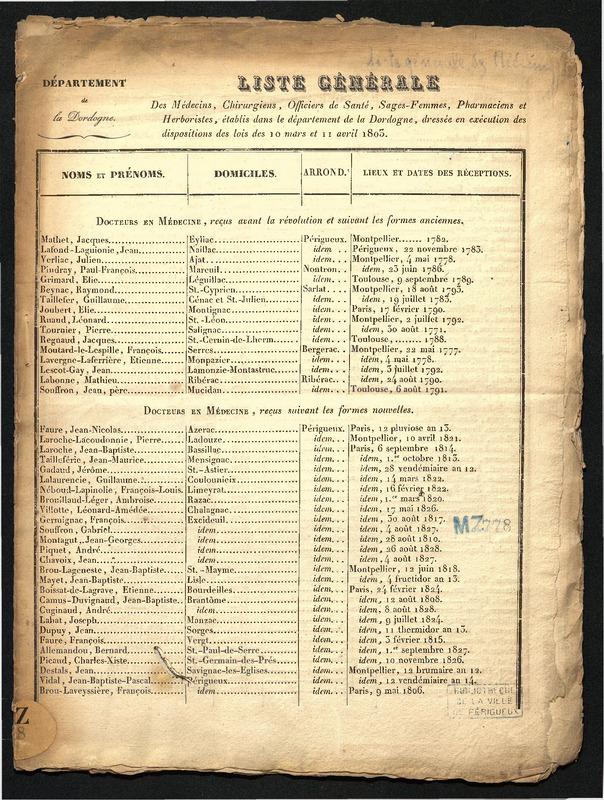 DÉPARTEMENT
de
la Dordogne.
LISTE GÉNÉRALE
Des Médecins, Chirurgiens, Officiers de Santé, Sages-Femmes, Pharmaciens et
Herboristes, établis dans le département de la Dordogne, dressée en exécution des
dispositions des lois des 10 mars et 11 avril 1803.
NOMS ET PRÉNOMS. DOMICILES. ARROND.t LIEUX ET DATES DES RÉCEPTIONS.
DOCTEURS EN MÉDECINE, reçus avant la révolution et suivant les formes anciennes.
Mathet, Jacques. Eyliac. Périgueux. Montpellier....... 1782.
Lafond-Laguionie, Jean. Naillac. idem... Périgueux, 22 novembre 1783.
Verliac, Julien. Ajat. idem... Montpellier, 4 mai 1778.
Pindray, Paul-François. Mareuil. Nontron.. idem, 23 juin 1786.
Grimard, Elie. Léguillac. idem... Toulouse, 9 septembre 1789.
Beynac, Raymond. St.-Cyprien. Sarlat... Montpellier, 18 août 1793.
Taillefer, Guillaume. Génac et St.-Julien. idem... idem, 19 juillet 1783.
Joubert, Elie. Montignac. idem... Paris, 17 février 1790.
Ruaud, Léonard. St.-Léon. idem... Montpellier, 2 juillet 1792.
Tournier, Pierre. Salignac. idem... idem, 30 août 1771.
Regnaud, Jacques. St.-Cernin-de-Lherm. idem... Toulouse,........ 1788.
Moutard-le-Lespille, François. Serres. Bergerac. Montpellier, 22 mai 1777.
Lavergne-Laferrière, Etienne. Monpazier. idem... idem, 4 mai 1778.
Lescot-Gay, Jean. Lamonzie-Montastruc. idem... idem, 3 juillet 1792.
Labonne, Mathieu. Ribérac. Ribérac. idem, 24 août 1790.
Souffron, Jean, père. Mucidan. idem... Toulouse, 6 août 1791.
DOCTEURS EN MÉDECINE, reçus suivant les formes nouvelles.
Faure, Jean-Nicolas. Azerac. Périgueux. Paris, 12 pluviose an 13.
Laroche-Lacoudonnie, Pierre. Ladouze. idem... Montpellier, 10 avril 1821.
Laroche, Jean-Baptiste. Bassillac. idem... Paris, 6 septembre 1814.
Tailleférie, Jean-Maurice. Mensignac. idem... idem, 1.er octobre 1813.
Gadaud, Jérôme. St.-Astier. idem... idem, 28 vendémiaire an 12.
Lalaurencie, Guillaume. Coulounieix. idem... idem, 14 mars 1822.
Néboud-Lapinolie, François-Louis. Limeyrat. idem... idem, 16 février 1822.
Brouillaud-Léger, Ambroise. Razac. idem... idem, 1.er mars 1820.
Villotte, Léonard-Amédée. Chalagnac. idem... idem, 17 mai 1826.
Germignac, François. Excideuil. idem... idem, 30 août 1817.
Souffron, Gabriel. idem. idem... idem, 4 août 1827.
Montagut, Jean-Georges. idem. idem... idem, 28 août 1810.
Piquet, André. idem. idem... idem, 26 août 1828.
Chavoix, Jean. idem. idem... idem, 4 août 1827.
Brou-Lageneste, Jean-Baptiste. St.-Mayme. idem... Montpellier, 12 juin 1818.
Mayet, Jean-Baptiste. Lisle. idem... idem, 4 fructidor an 13.
Boissat-de-Lagrave, Etienne. Bourdeilles. idem... Paris, 24 février 1824.
Camus-Duvignaud, Jean-Baptiste. Brantôme. idem... idem, 12 août 1808.
Cuginaud, André. idem. idem... idem, 8 août 1828.
Labat, Joseph. Manzac. idem... idem, 9 juillet 1824.
Dupuy, Jean. Sorges. idem... idem, 11 thermidor an 13.
Faure, François. Vergt. idem... idem, 3 février 1815.
Allemandou, Bernard. St.-Paul-de-Serre. idem... idem, 1.er septembre 1827.
Picaud, Charles-Xiste. St.-Germain-des-Prés. idem... idem, 10 novembre 1826.
Destals, Jean. Savignac-les-Eglises. idem... Montpellier, 12 brumaire an 12.
Vidal, Jean-Baptiste-Pascal. Périgueux. idem... idem, 12 vendémiaire an 14.
Brou-Laveyssière, François. idem. idem... Paris, 9 mai 1806.
MZ 778
BIBLIOTHÈQUE
DE LA VILLE
DE PÉRIGUEUX
Z
8